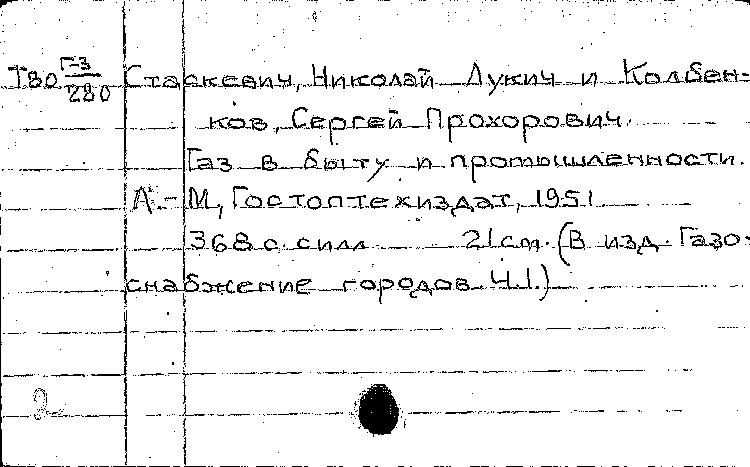 Т80 Г-3/280 Стаскевич, Николай Лукич и Колбен-
ков, Сергей Прохорович.
Газ в быту и промышленности.
Л.-М, Гостоптехиздат, 1951
368 с. силл 21 cm. (В изд. Газо-
снабжение городов Ч.1.)
2